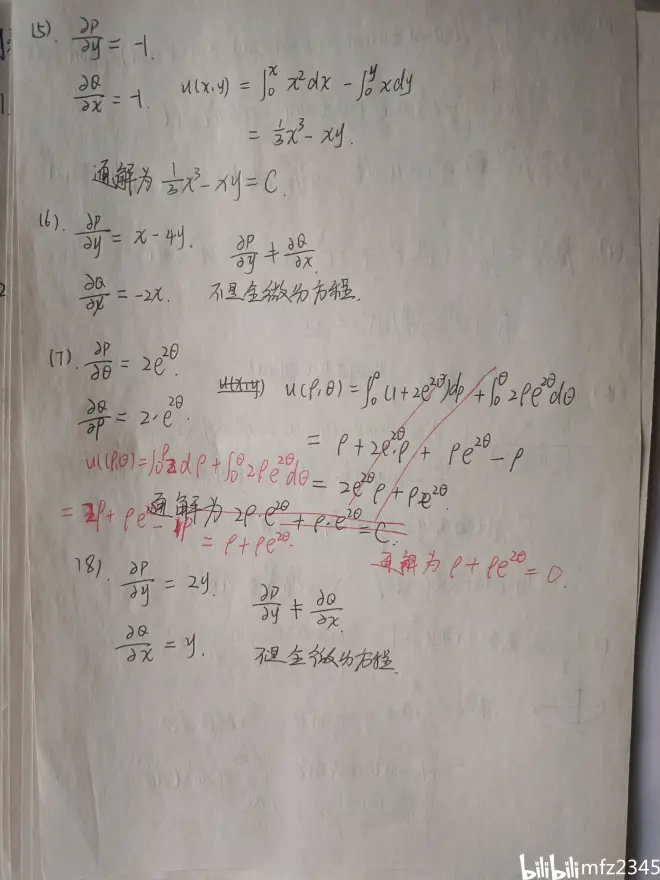 (5). ∂P/∂y = -1.
∂Q/∂x = -1. u(x,y) = ∫₀ˣ x²dx - ∫₀ʸ xdy
= 1/3 x³ - xy.
通解为 1/3 x³ - xy = C.
(6). ∂P/∂y = x - 4y. ∂P/∂y ≠ ∂Q/∂x.
∂Q/∂x = -2x. 不是全微分方程.
(7). ∂P/∂θ = 2e^{2θ}.
u(x,y) u(ρ,θ) = ∫₀^ρ (1+2e^{2θ})dρ + ∫₀^θ 2ρe^{2θ}dθ
∂Q/∂ρ = 2·e^{2θ}.
= ρ + 2e^{2θ}·ρ + ρe^{2θ} - ρ
u(ρ,θ) = ∫₀^ρ 2dρ + ∫₀^θ 2ρe^{2θ}dθ
= 2e^{2θ}ρ + ρe^{2θ}.
= 2ρ + ρe^{2θ} - ρ
通解为 2ρ·e^{2θ} + ρ·e^{2θ} = C.
= ρ + ρe^{2θ}.
通解为 ρ + ρe^{2θ} = 0.
(8). ∂P/∂y = 2y. ∂P/∂y ≠ ∂Q/∂x.
∂Q/∂x = y. 不是全微分方程.
bilibili mfz2345